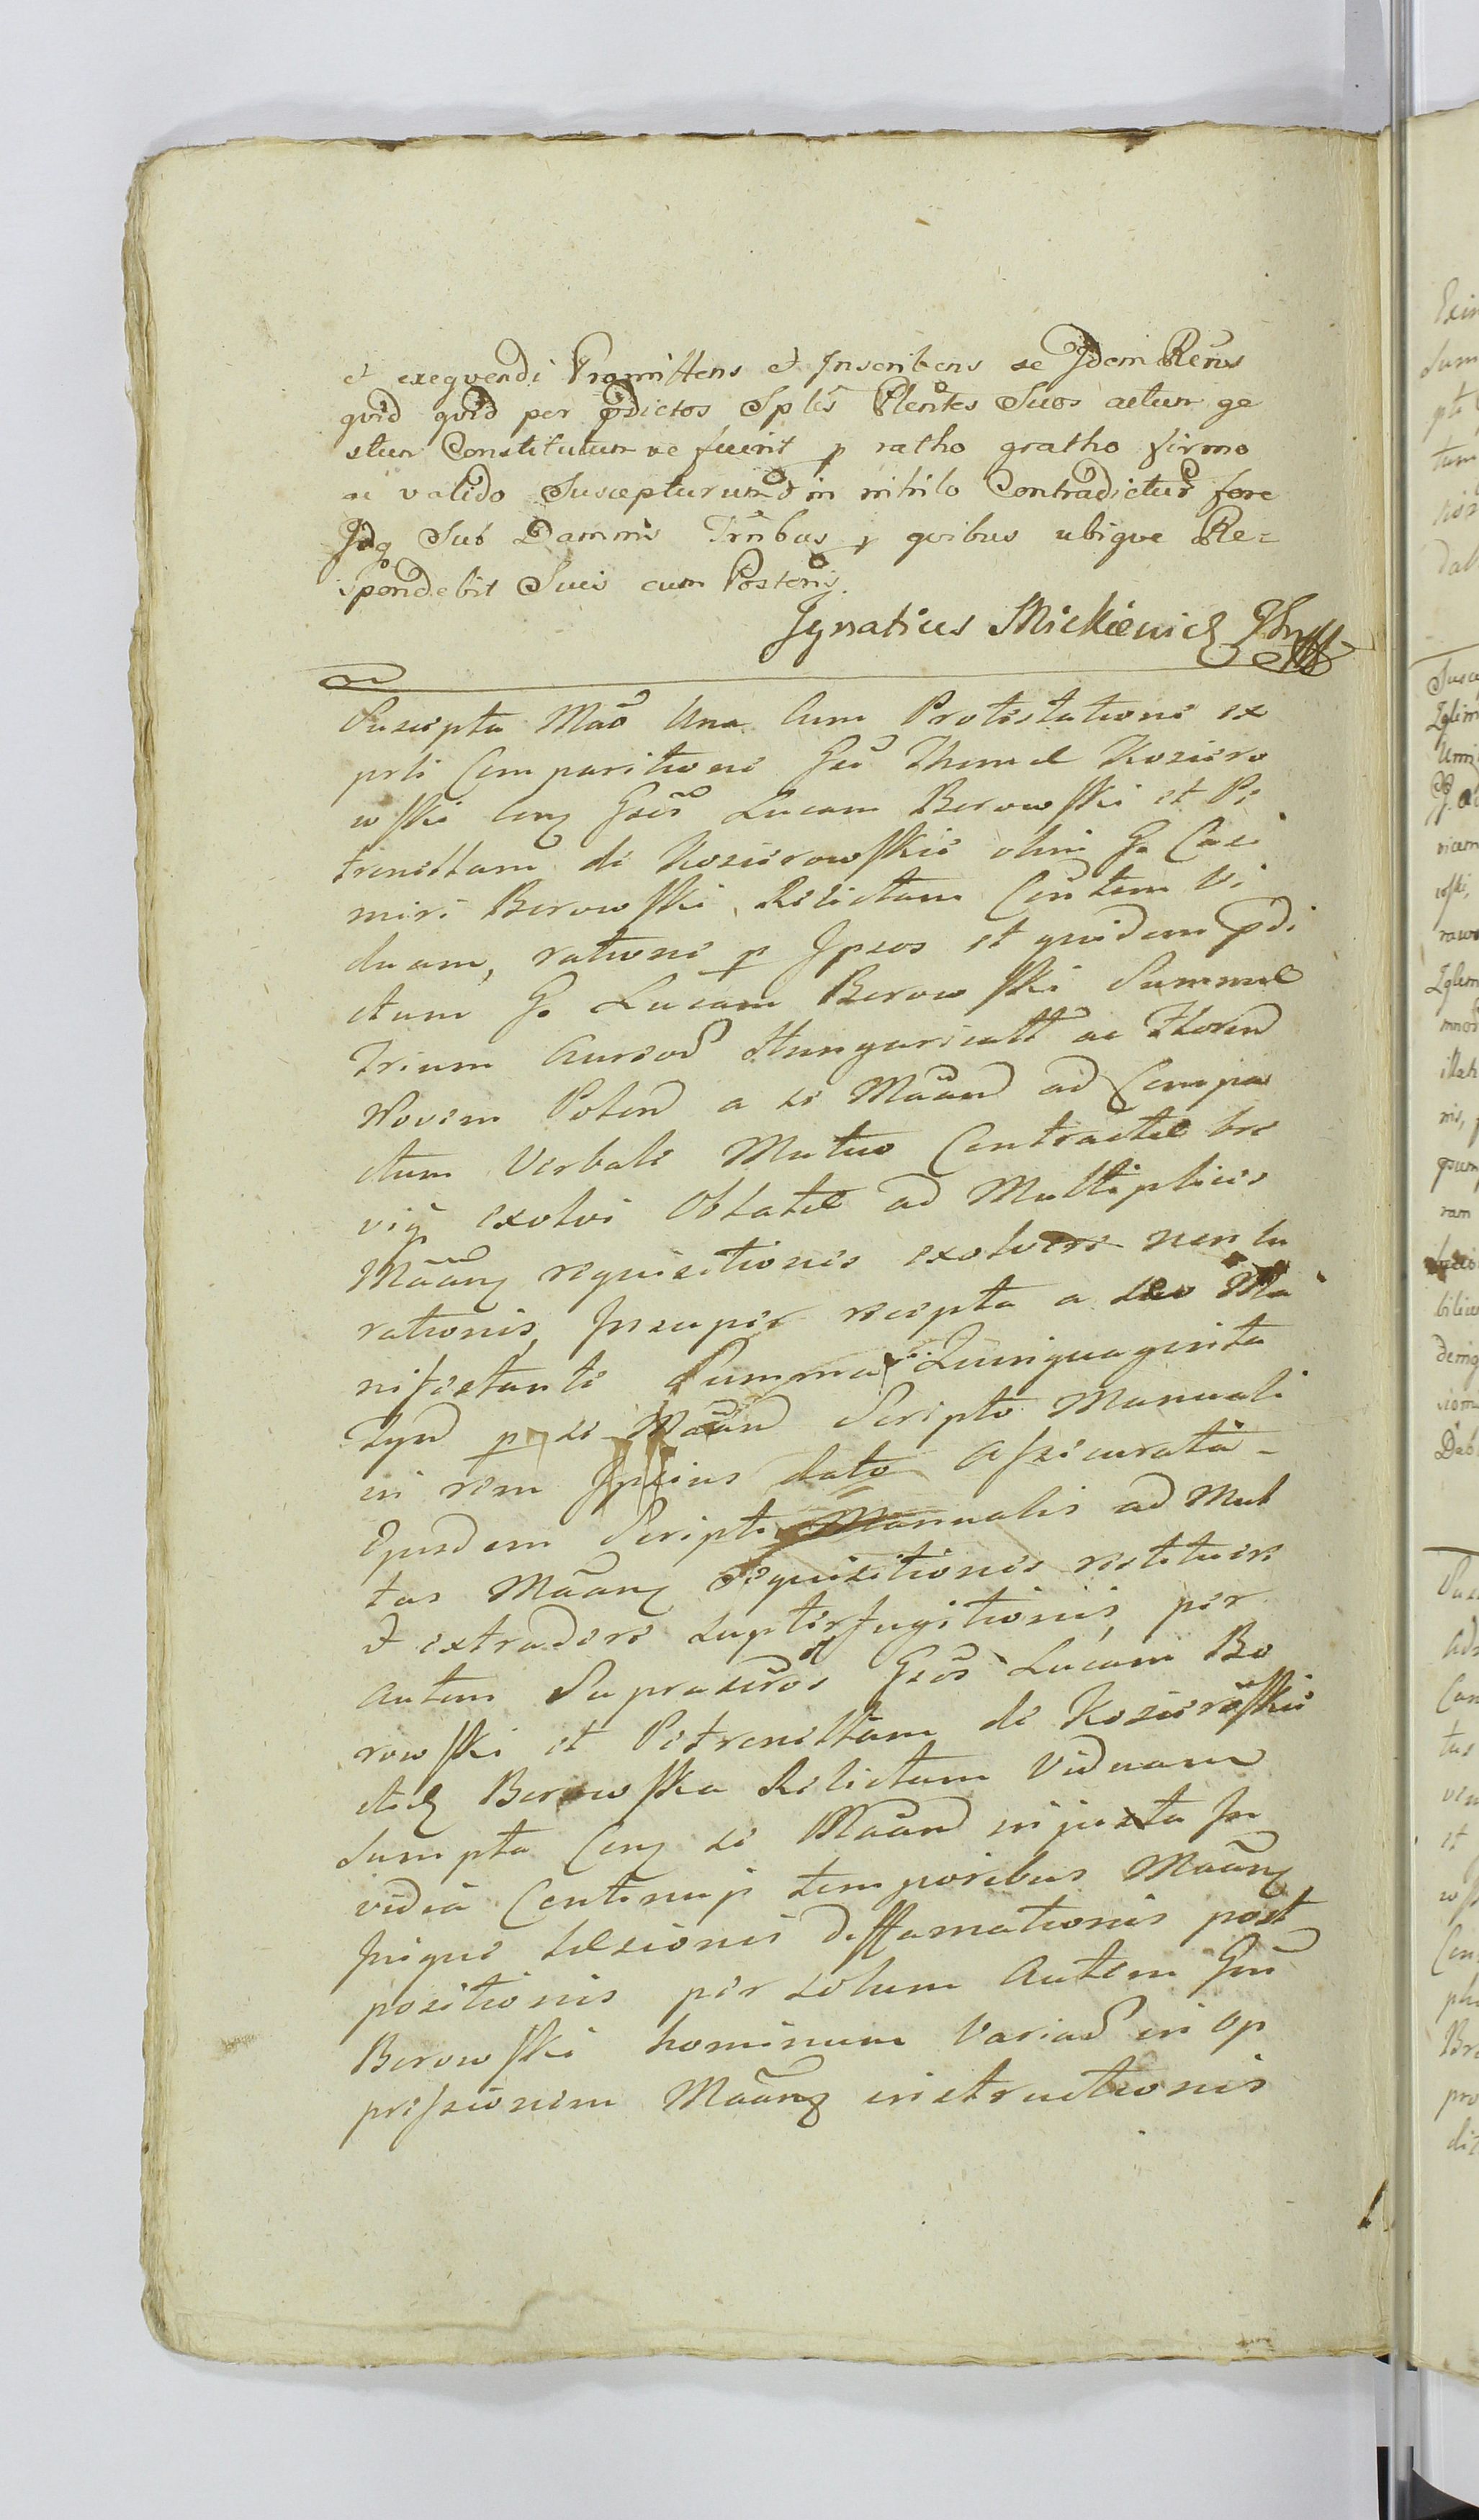 et exequendi Promittens et Inscribens se Idem Rens
quid quid per pdictos Sples Plentes Suos actum ge
stum Constitutum ve fuerit p ratho gratho firmo
ac valido Suscepturum et in nihilo Contradictur fore
Idq Sub Damnis Trribus p quibus ubique Re=
spondebit Suis cum Posteris.
Ignatius Mickiewicz
Suscepta Mão Una Cum Protestatione ex
prti Comparitione Gsi Thomæ Koziero
wski Conz Gsos Lucam Borowski et Pe
tronellam de Kozierowskie olim G. Casi
miri Borowski Relictam Contem Vi
duam, ratione p Ipsos et quidem pdi
ctum G. Lucam Borowski Summæ
Trium Aureod Hungaricall ac Floren
Novem Polon a se Mãan ad Compa
ctum Verbale Mutuo Contractæ bre
vig exolvi Oblatæ ad Multiplices
Mãanz requisitiones exolvere non cu
rationis, Insuper recepta a se Ma
nifestante Summa Quinquaginta
Tyn p se Mãan Scripto Manuali
in rem Ipsius dato Assecurata
Ejusdem Scripti Manualis ad Mul
tas Mãanz requisitiones restituere
et extradere supterfugitionis, per
autem Suprascros Gsos Lucam Bo
rowski et Petronellam de Kozierowskie
ctaz Borowska Relictam Viduam
Sumpta Conz se Mãan injusta In
vidia Continuis temporibus Mãanz
Inique Læsionis diffamationis post
positionis per solum autem Gsu
Borowski hominum Variad in op
pressionem Mãanz instructionis